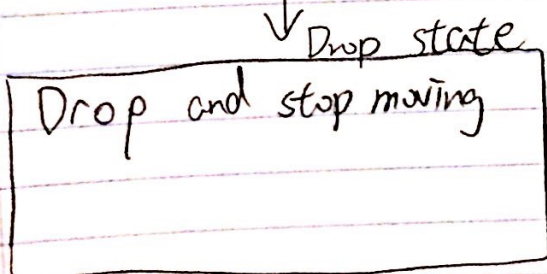 Drop state
Drop and stop moving